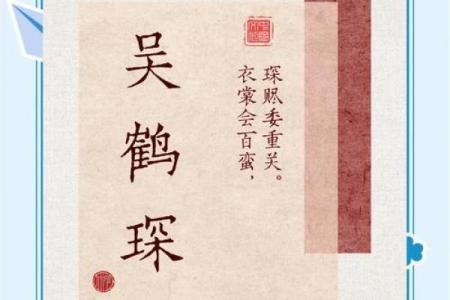 吴鹤琛
衣裳会百蛮，
琛赆委重关。